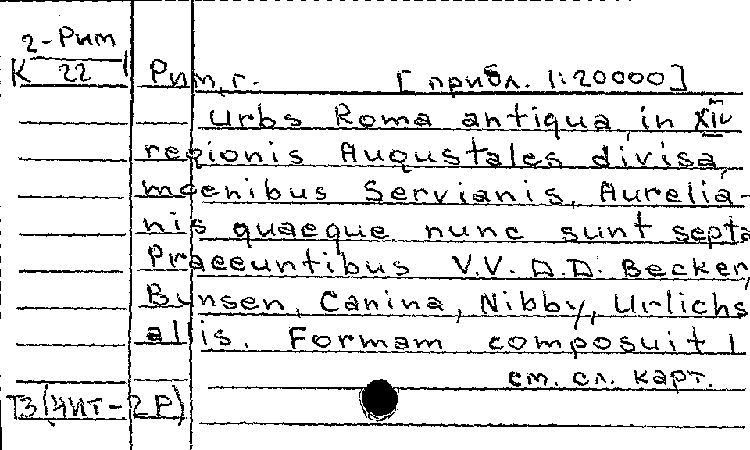 2-Рим
К 22
Рим, г. [прибл. 1:20000]
Urbs Roma antiqua, in XIV
regionis Augustales divisa,
moenibus Servianis, Aurelia-
nis quaeque nunc sunt septa
Praeeuntibus V.V. D.D. Becker,
Bunsen, Canina, Nibby, Urlichs
allis. Formam composuit I
см. сл. карт.
ТЗ(ЧИТ-2Р)